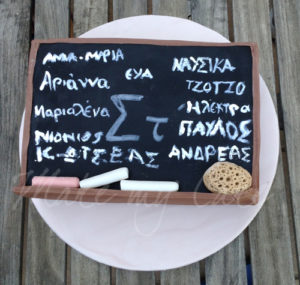 ΑΝΝΑ-ΜΑΡΙΑ
ΕΥΑ
ΝΑΥΣΙΚΑ
Αριάννα
ΤΖΟΤΖΟ
Μαριαλένα
Στ
Ηλέκτρα
ΝΙΟΝΙΟΣ
ΠΑΥΛΟΣ
Κ.ΔΤΣΕΑΣ
ΑΝΔΡΕΑΣ